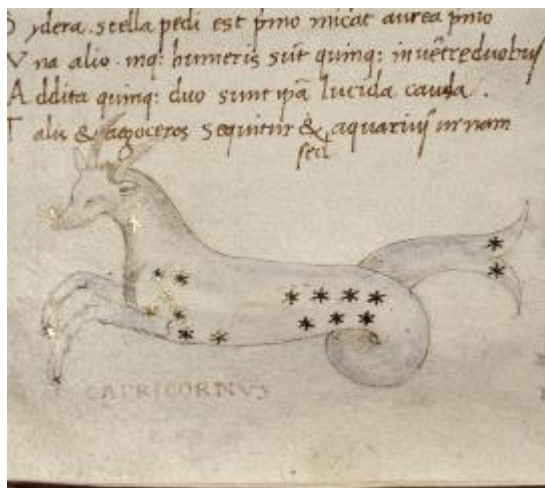 ydera. stella pedi est pͥmo micat aurea pͥmo
na alio. inq: humeris sūt quinq: in uētre duobus
A ddita quinq: duo sunt ip̄a lucida cauda.
T alis & egoceros sequitur & aquarius urnam
sed
CAPRICORNVS